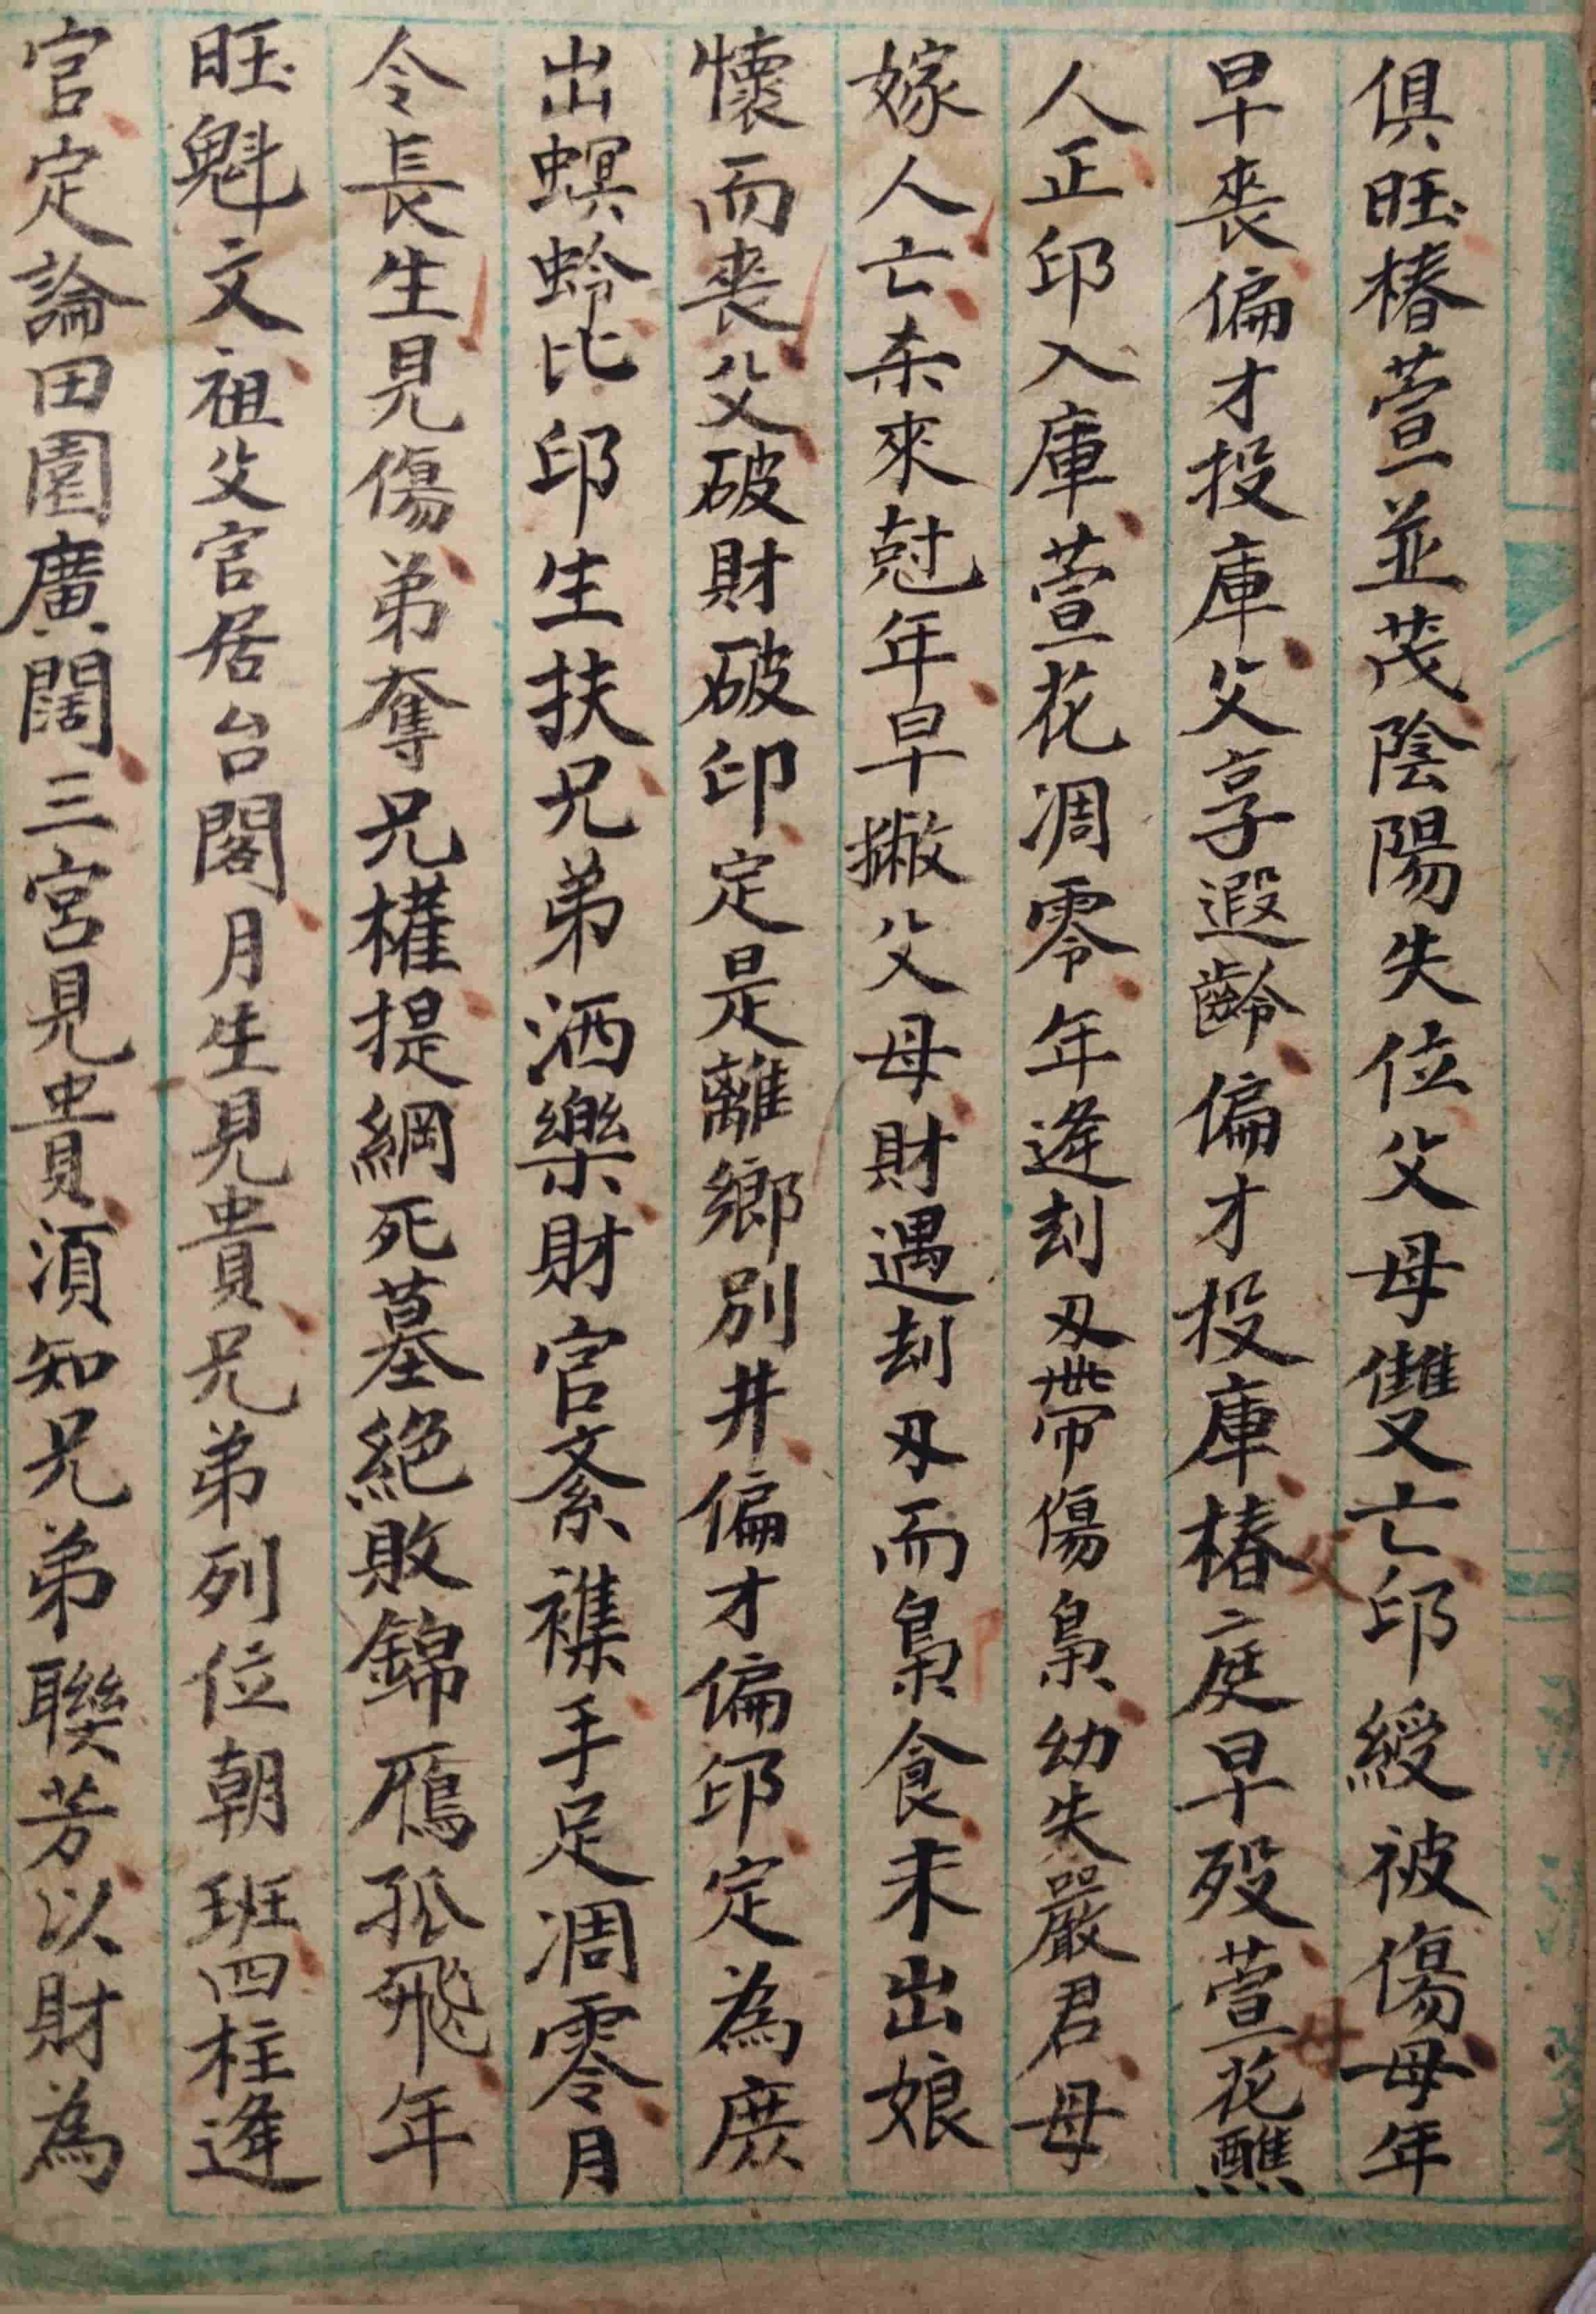 俱旺椿萱並茂陰陽失位父母雙亡印綬被傷母年
早喪偏才投庫父享遐齡偏才投庫椿庭早殁萱花醮
人正印入庫萱花凋零年逢刦刄帶傷梟幼失嚴君母
嫁人亡柰來尅年早撇父母財遇刦刄而梟食未出娘
懷而喪父破財破印定是離鄉別井偏才偏印定為庶
出螟蛉比印生扶兄弟洒樂財官紊襍手足凋零月
令長生見傷弟奪兄權提綱死墓絕敗錦雁孤飛年
旺魁文祖父官居台閣月生見貴兄弟列位朝班四柱逢
官定論田園廣闊三宮見貴須知兄弟聯芳以財為
父
母